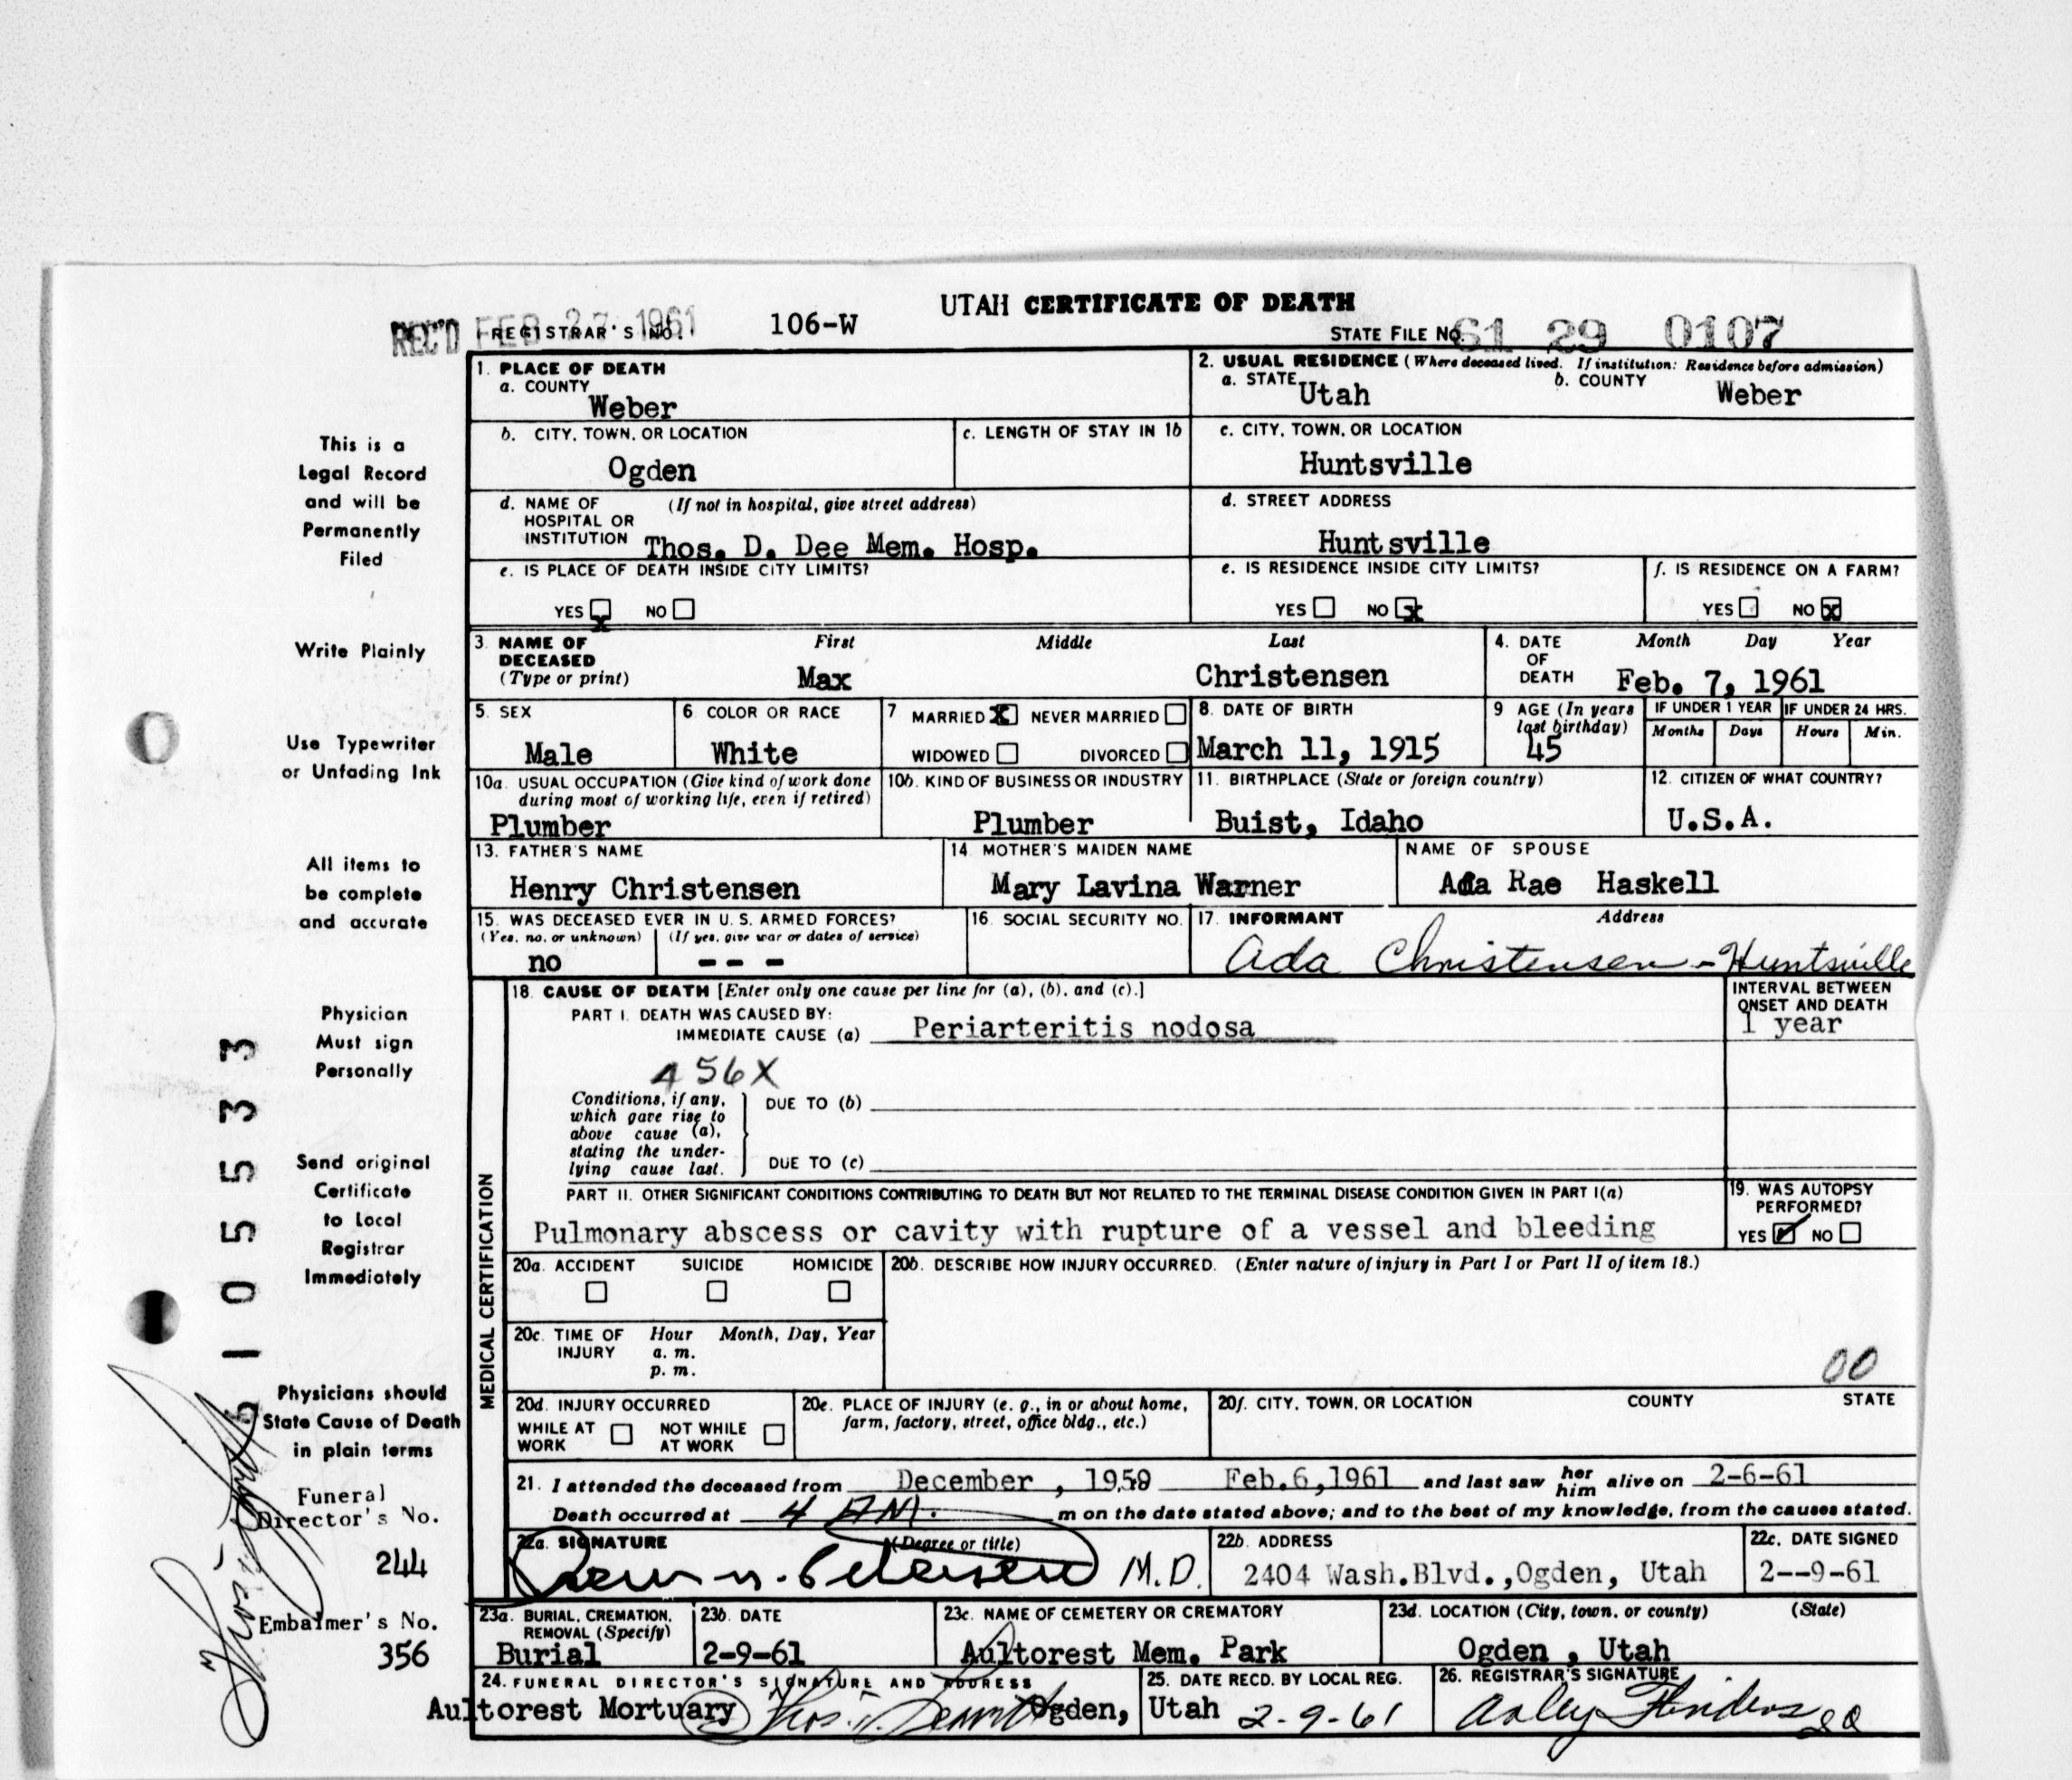 UTAH CERTIFICATE OF DEATH
REC'D FEB 27 1961
REGISTRAR'S NO. 106-W
STATE FILE NO. 61 29 0107
1. PLACE OF DEATH
a. COUNTY
Weber
2. USUAL RESIDENCE (Where deceased lived. If institution: Residence before admission)
a. STATE Utah b. COUNTY Weber
b. CITY, TOWN, OR LOCATION
Ogden
c. LENGTH OF STAY IN 1b
c. CITY, TOWN, OR LOCATION
Huntsville
d. NAME OF HOSPITAL OR INSTITUTION (If not in hospital, give street address)
Thos. D. Dee Mem. Hosp.
d. STREET ADDRESS
Huntsville
e. IS PLACE OF DEATH INSIDE CITY LIMITS?
YES X NO
e. IS RESIDENCE INSIDE CITY LIMITS?
YES NO X
f. IS RESIDENCE ON A FARM?
YES NO X
3. NAME OF DECEASED (Type or print)
First Middle Last
Max Christensen
4. DATE OF DEATH Month Day Year
Feb. 7, 1961
5. SEX
Male
6. COLOR OR RACE
White
7 MARRIED X NEVER MARRIED
WIDOWED DIVORCED
8. DATE OF BIRTH
March 11, 1915
9 AGE (In years last birthday)
45
IF UNDER 1 YEAR
Months Days
IF UNDER 24 HRS.
Hours Min.
10a. USUAL OCCUPATION (Give kind of work done during most of working life, even if retired)
Plumber
10b. KIND OF BUSINESS OR INDUSTRY
Plumber
11. BIRTHPLACE (State or foreign country)
Buist, Idaho
12. CITIZEN OF WHAT COUNTRY?
U.S.A.
13. FATHER'S NAME
Henry Christensen
14. MOTHER'S MAIDEN NAME
Mary Lavina Warner
NAME OF SPOUSE
Ada Rae Haskell
15. WAS DECEASED EVER IN U. S. ARMED FORCES?
(Yes, no, or unknown) (If yes, give war or dates of service)
no - - -
16. SOCIAL SECURITY NO.
17. INFORMANT Address
Ada Christensen - Huntsville
MEDICAL CERTIFICATION
18. CAUSE OF DEATH [Enter only one cause per line for (a), (b), and (c).]
PART I. DEATH WAS CAUSED BY:
IMMEDIATE CAUSE (a) Periarteritis nodosa
INTERVAL BETWEEN ONSET AND DEATH
1 year
456X
Conditions, if any, which gave rise to above cause (a), stating the underlying cause last.
DUE TO (b)
DUE TO (c)
PART II. OTHER SIGNIFICANT CONDITIONS CONTRIBUTING TO DEATH BUT NOT RELATED TO THE TERMINAL DISEASE CONDITION GIVEN IN PART I(a)
Pulmonary abscess or cavity with rupture of a vessel and bleeding
19. WAS AUTOPSY PERFORMED?
YES NO
20a. ACCIDENT SUICIDE HOMICIDE
20b. DESCRIBE HOW INJURY OCCURRED. (Enter nature of injury in Part I or Part II of item 18.)
20c. TIME OF INJURY Hour Month, Day, Year
a. m.
p. m.
00
20d. INJURY OCCURRED
WHILE AT WORK NOT WHILE AT WORK
20e. PLACE OF INJURY (e. g., in or about home, farm, factory, street, office bldg., etc.)
20f. CITY, TOWN, OR LOCATION COUNTY STATE
21. I attended the deceased from December, 1959 Feb.6,1961 and last saw her him alive on 2-6-61
Death occurred at 4 AM. m on the date stated above; and to the best of my knowledge, from the causes stated.
22a. SIGNATURE (Degree or title)
M.D.
22b. ADDRESS
2404 Wash.Blvd.,Ogden, Utah
22c. DATE SIGNED
2--9-61
23a. BURIAL, CREMATION, REMOVAL (Specify)
Burial
23b. DATE
2-9-61
23c. NAME OF CEMETERY OR CREMATORY
Aultorest Mem. Park
23d. LOCATION (City, town, or county) (State)
Ogden , Utah
24. FUNERAL DIRECTOR'S SIGNATURE AND ADDRESS
Aultorest Mortuary Ogden, Utah
25. DATE RECD. BY LOCAL REG.
2-9-61
26. REGISTRAR'S SIGNATURE
This is a
Legal Record
and will be
Permanently
Filed
Write Plainly
Use Typewriter
or Unfading Ink
All items to
be complete
and accurate
Physician
Must sign
Personally
Send original
Certificate
to Local
Registrar
Immediately
Physicians should
State Cause of Death
in plain terms
Funeral
Director's No.
244
Embalmer's No.
356
6 1 0 5 5 3 3